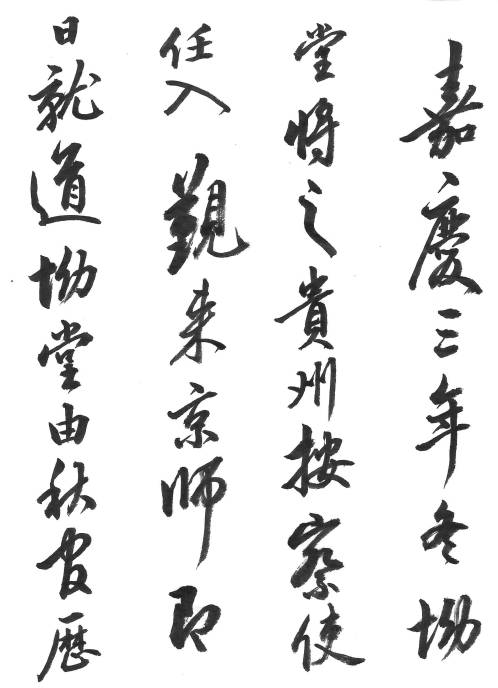 嘉慶三年冬坳
堂將之貴州按察使
任入覲来京師即
日就道坳堂由秋官歷